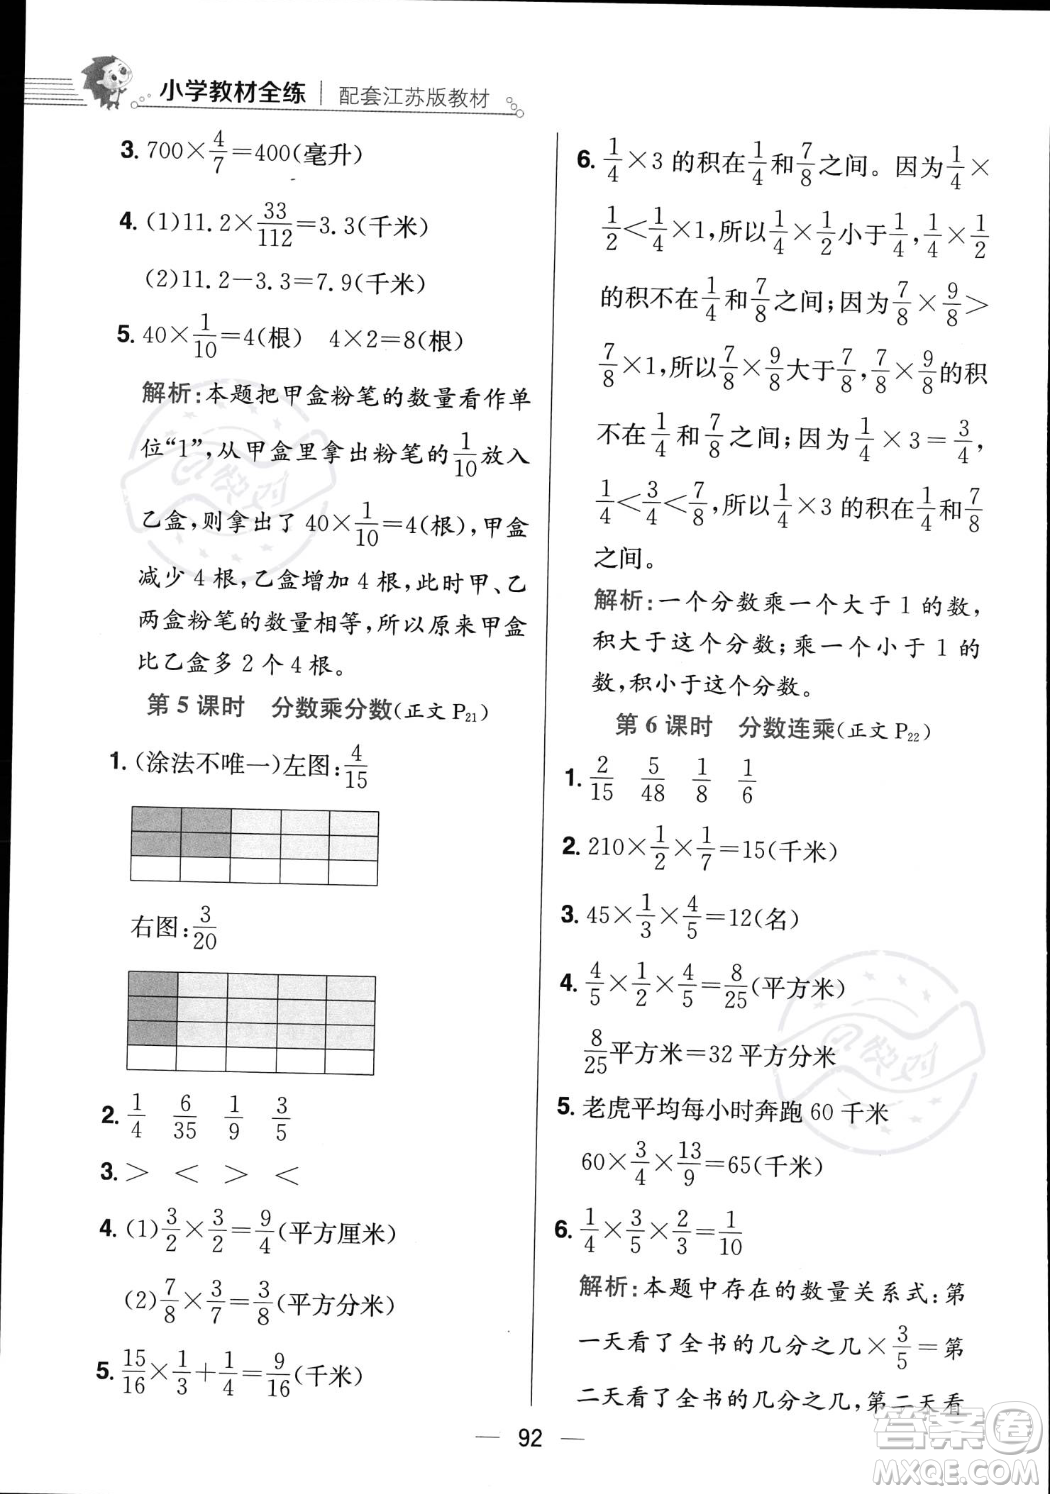 小学教材全练 配套江苏版教材
3. 700×4/7=400(毫升)
4. (1)11.2×33/112=3.3(千米)
(2)11.2-3.3=7.9(千米)
5. 40×1/10=4(根) 4×2=8(根)
解析:本题把甲盒粉笔的数量看作单
位“1”,从甲盒里拿出粉笔的1/10放入
乙盒,则拿出了40×1/10=4(根),甲盒
减少4根,乙盒增加4根,此时甲、乙
两盒粉笔的数量相等,所以原来甲盒
比乙盒多2个4根。
第5课时 分数乘分数(正文P21)
1. (涂法不唯一)左图:4/15
右图:3/20
2. 1/4 6/35 1/9 3/5
3. > < > <
4. (1)3/2×3/2=9/4(平方厘米)
(2)7/8×3/7=3/8(平方分米)
5. 15/16×1/3+1/4=9/16(千米)
6. 1/4×3的积在1/4和7/8之间。因为1/4×
1/2<1/4×1,所以1/4×1/2小于1/4,1/4×1/2
的积不在1/4和7/8之间;因为7/8×9/8>
7/8×1,所以7/8×9/8大于7/8,7/8×9/8的积
不在1/4和7/8之间;因为1/4×3=3/4,
1/4<3/4<7/8,所以1/4×3的积在1/4和7/8
之间。
解析:一个分数乘一个大于1的数,
积大于这个分数;乘一个小于1的
数,积小于这个分数。
第6课时 分数连乘(正文P22)
1. 2/15 5/48 1/8 1/6
2. 210×1/2×1/7=15(千米)
3. 45×1/3×4/5=12(名)
4. 4/5×1/2×4/5=8/25(平方米)
8/25平方米=32平方分米
5. 老虎平均每小时奔跑60千米
60×3/4×13/9=65(千米)
6. 1/4×3/5×2/3=1/10
解析:本题中存在的数量关系式:第
一天看了全书的几分之几×3/5=第
二天看了全书的几分之几,第二天看
92
答案卷
MXQE.COM